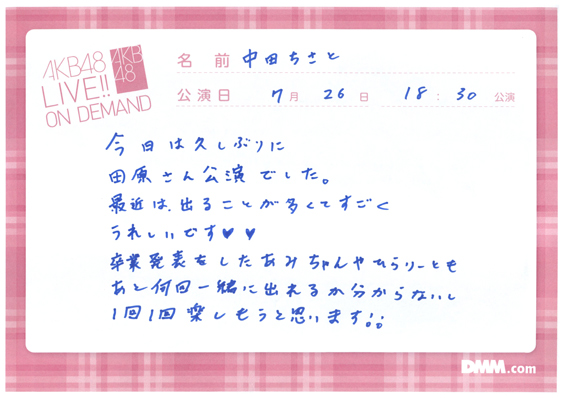 AKB48
LIVE!!
ON DEMAND
AKB
48
名 前 中田ちさと
公演日 7月 26日 18:30 公演
今日は久しぶりに
田原さん公演でした。
最近は、出ることが多くてすごく
うれしいです♥♥
卒業発表をしたあみちゃんやひらりーとも
あと何回一緒に出れるか分からないし
1回1回楽しもうと思います!!
DMM.com